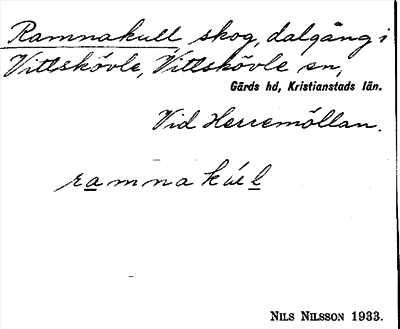 Ramnakull, skog, dalgång i
Vittskövle, Vittskövle sn,
Gärds hd, Kristianstads län.
Vid Herremöllan.
ramnakúl
NILS NILSSON 1933.